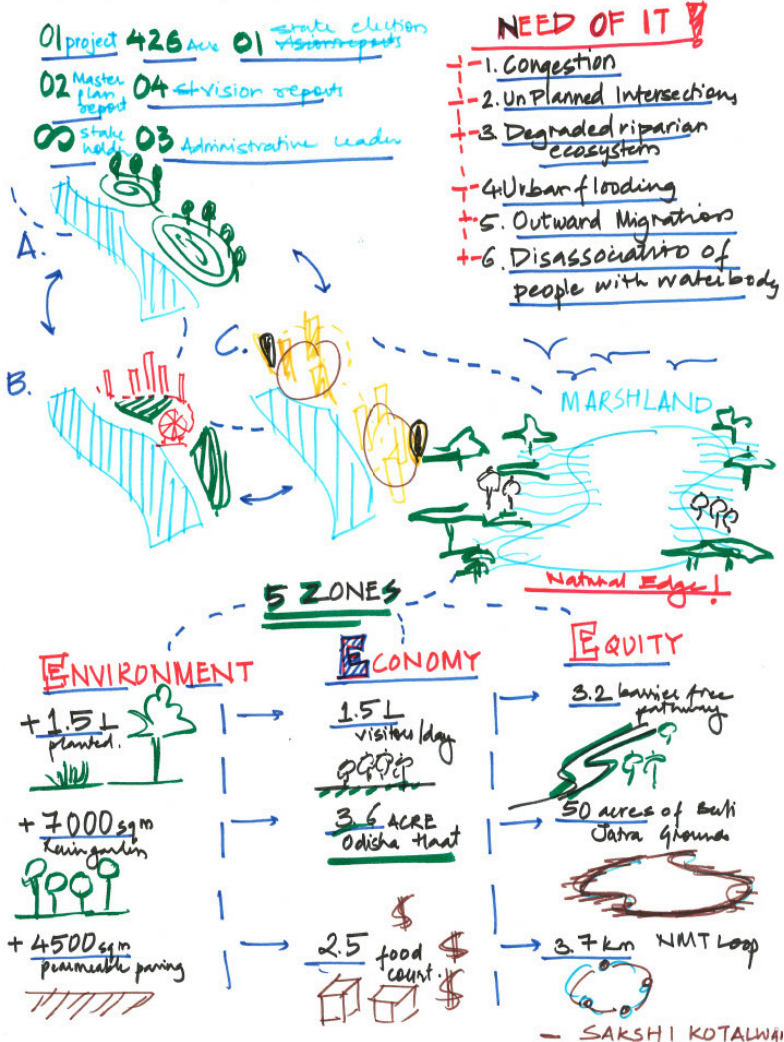 01 project 426 Acre 01 state election
Vision reports
02 Master plan report 04 st vision reports
∞ stake holder 03 Administrative leader
NEED OF IT !
1. Congestion
2. UnPlanned Intersections
3. Degraded riparian
ecosystem
4. Urban flooding
5. Outward Migration
6. Disassociation of
people with waterbody
A.
B.
C.
MARSHLAND
Natural Edge!
5 ZONES
ENVIRONMENT
+ 1.5 L
planted.
+ 7000 sqm
Rain garden
+ 4500 sqm
permeable paving
ECONOMY
1.5 L
visitors/day
3.6 ACRE
Odisha Haat
2.5 food
court.
$
$
$
EQUITY
3.2 barrier free
pathway
50 acres of Bali
Jatra Grounds
3.7 km NMT Loop
- SAKSHI KOTALWAR